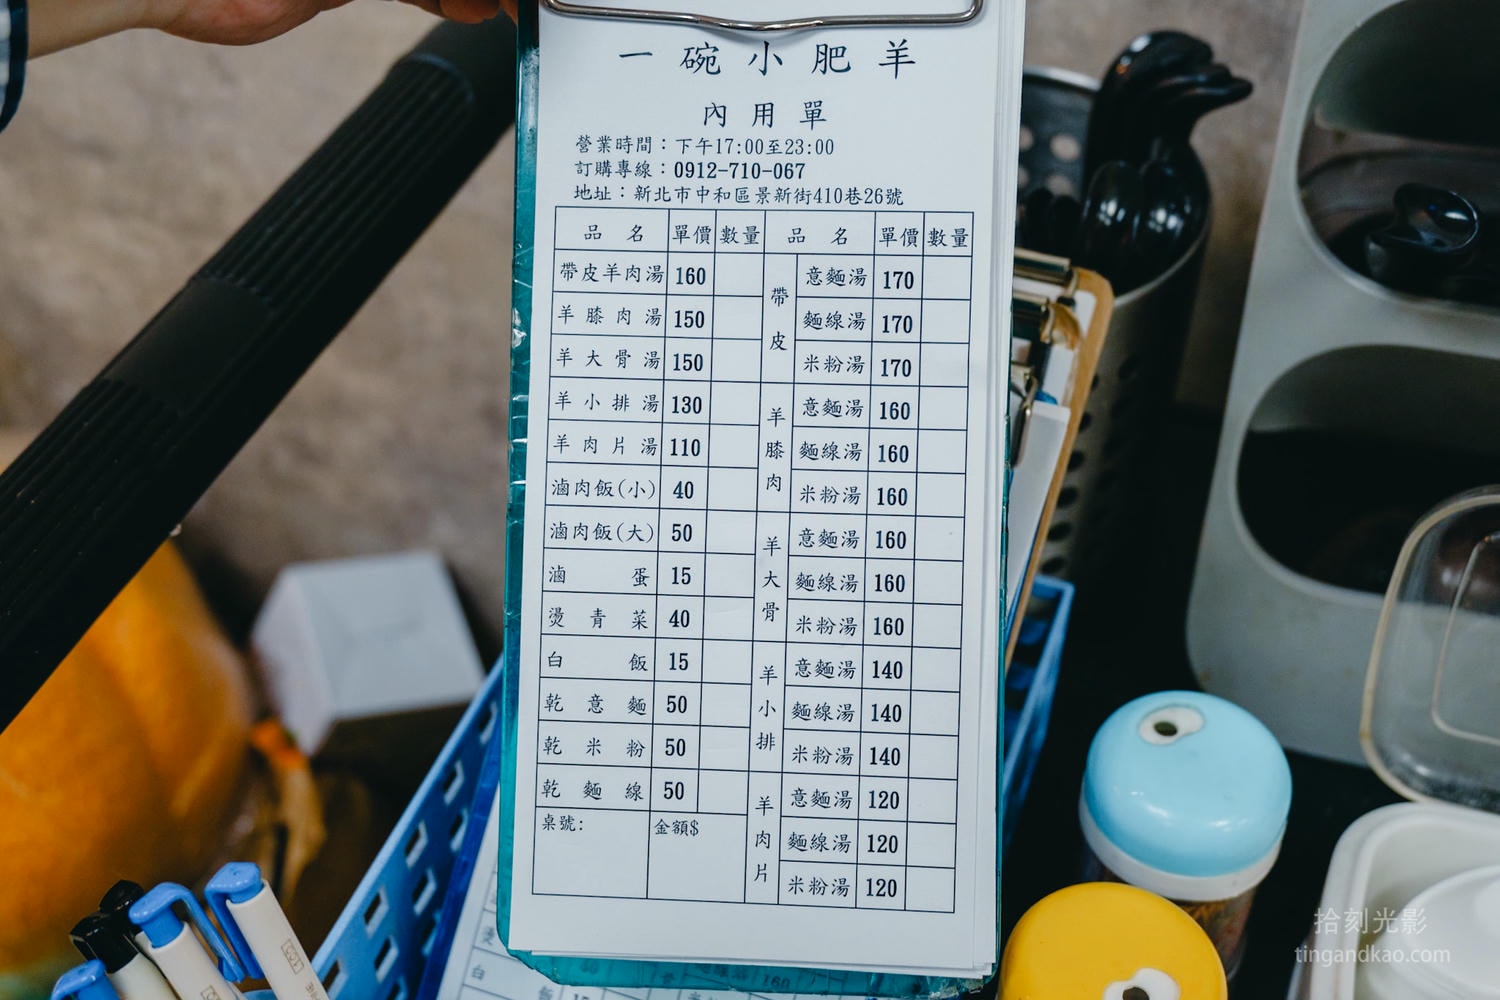 一碗小肥羊
內用單
營業時間：下午17:00至23:00
訂購專線：0912-710-067
地址：新北市中和區景新街410巷26號
品名 單價 數量 品名 單價 數量
帶皮羊肉湯 160 帶皮 意麵湯 170
羊膝肉湯 150 麵線湯 170
羊大骨湯 150 米粉湯 170
羊小排湯 130 羊膝肉 意麵湯 160
羊肉片湯 110 麵線湯 160
滷肉飯(小) 40 米粉湯 160
滷肉飯(大) 50 羊大骨 意麵湯 160
滷蛋 15 麵線湯 160
燙青菜 40 米粉湯 160
白飯 15 羊小排 意麵湯 140
乾意麵 50 麵線湯 140
乾米粉 50 米粉湯 140
乾麵線 50 羊肉片 意麵湯 120
桌號: 金額$ 麵線湯 120
米粉湯 120
拾刻光影
tingandkao.com